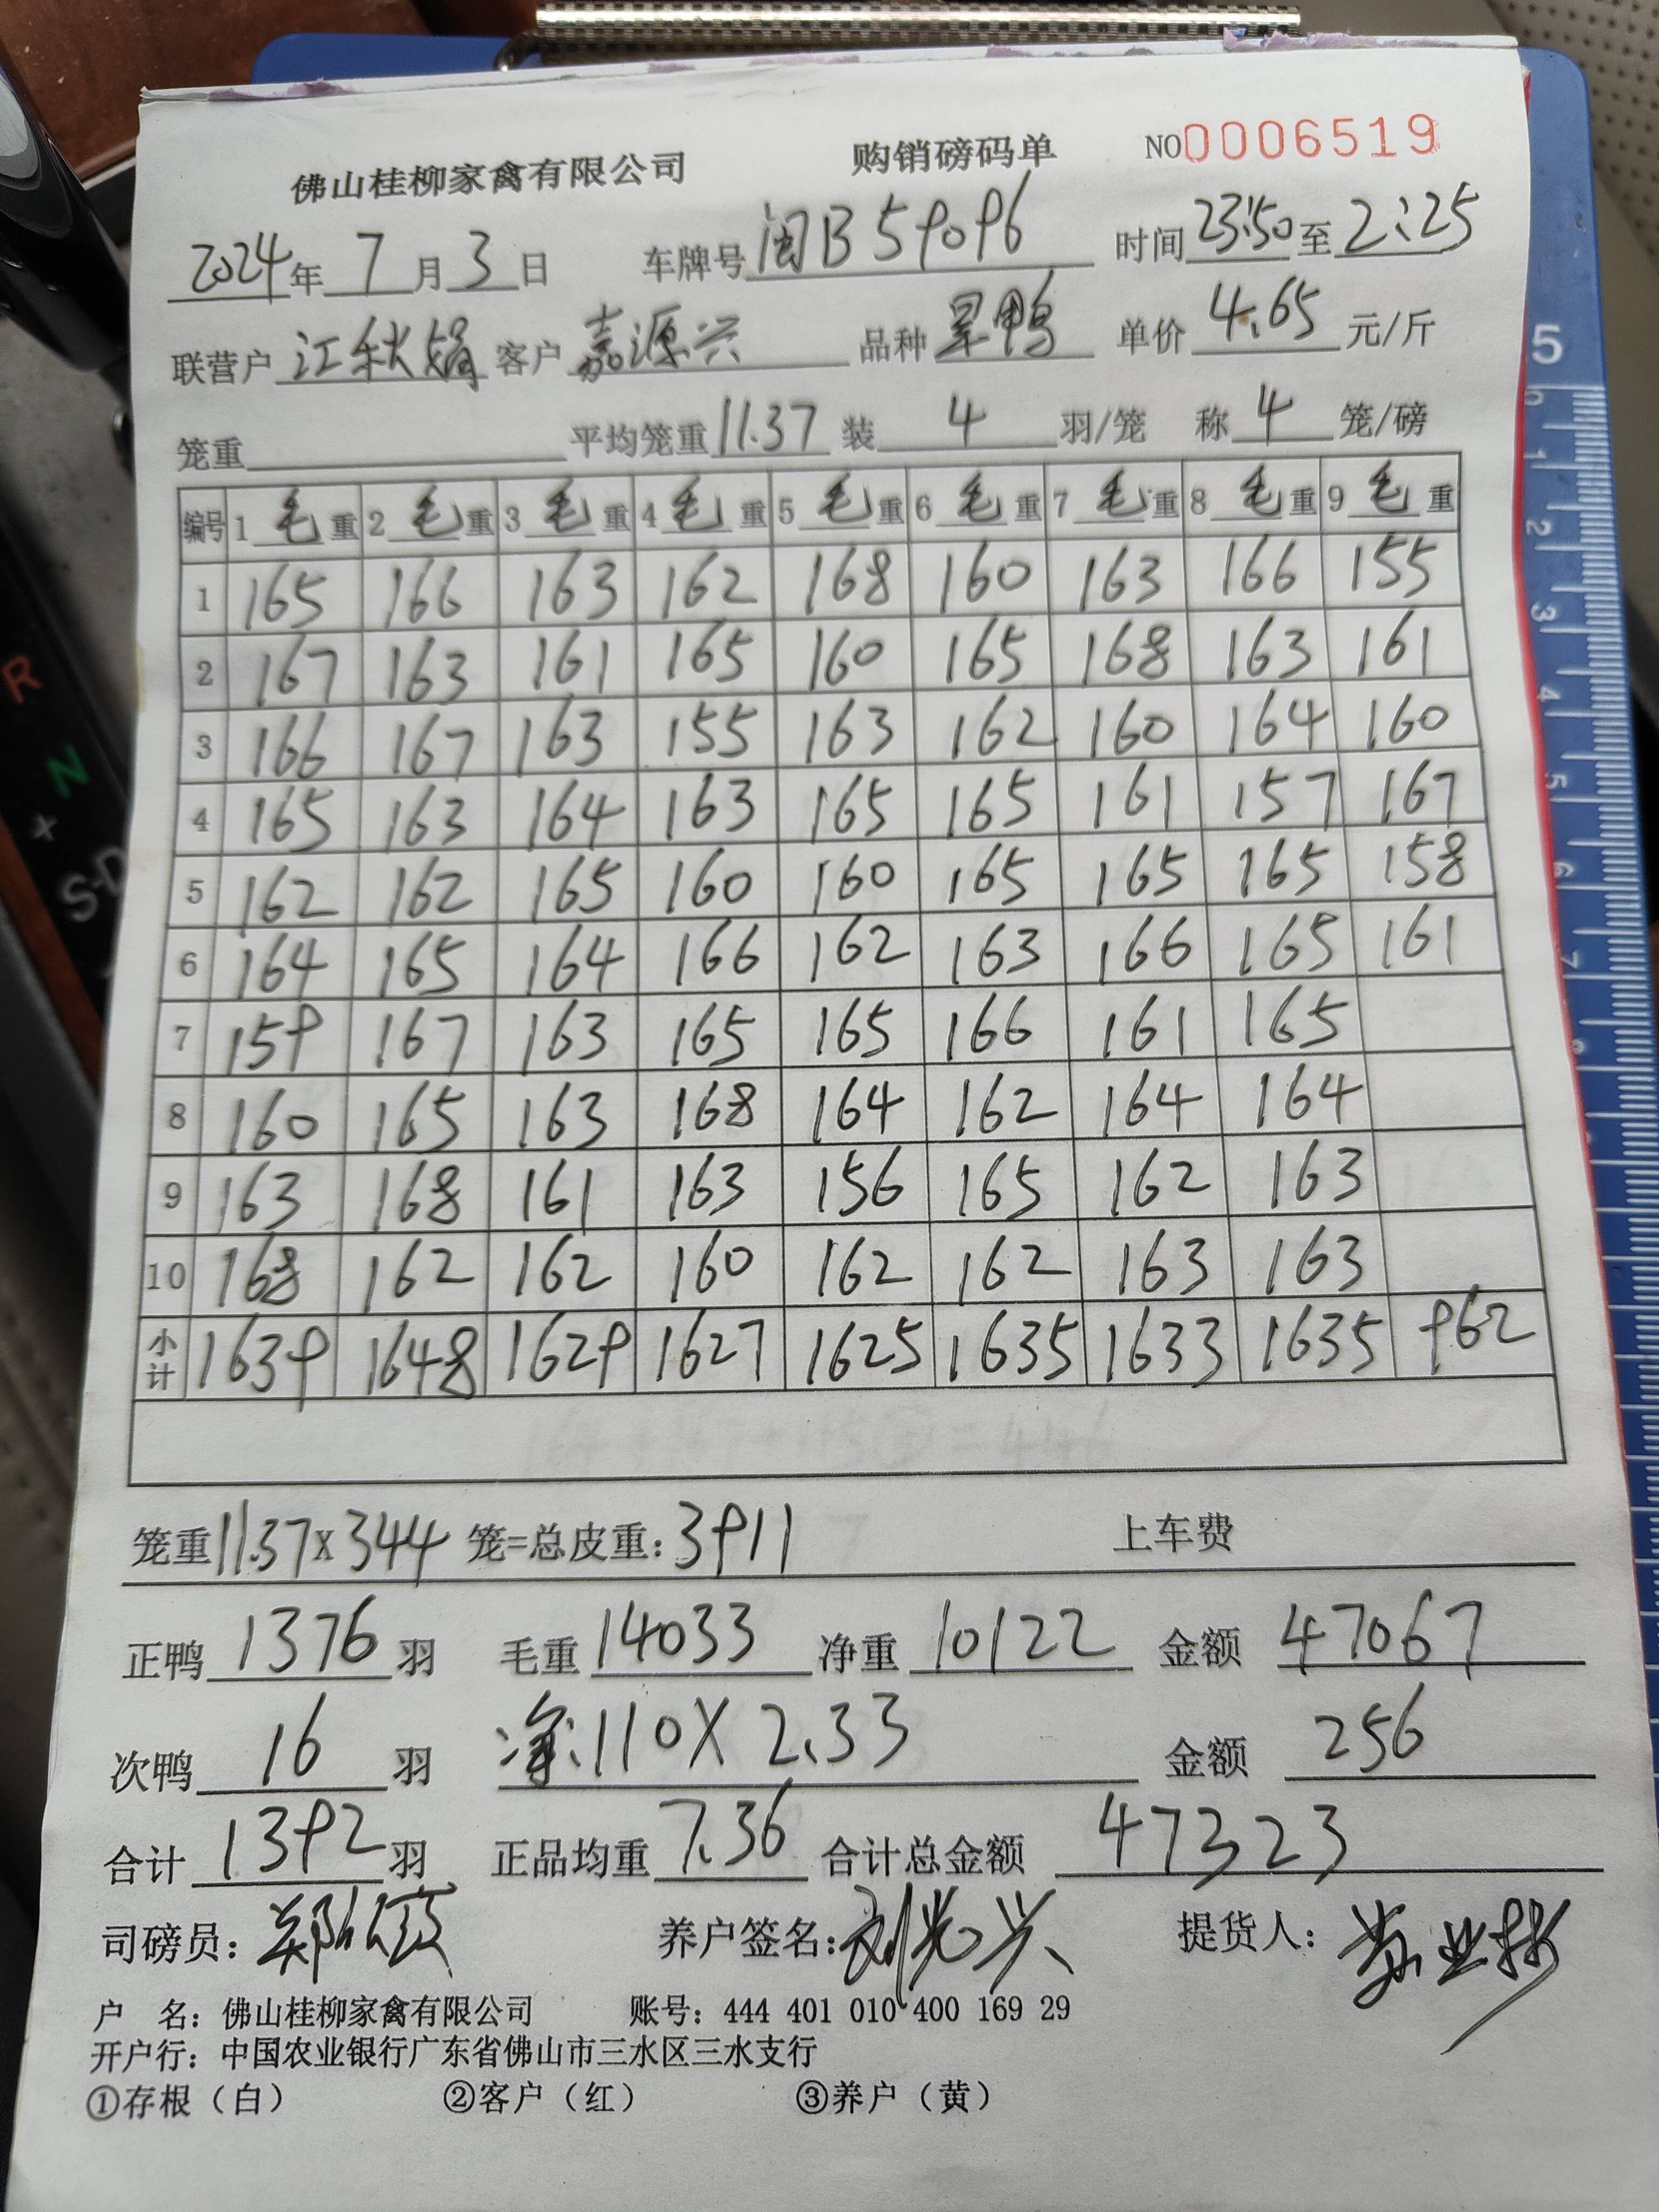 佛山桂柳家禽有限公司 购销磅码单 NO0006519
2024年 7 月 3 日 车牌号 闽B59096 时间 23:50 至 2:25
联营户 江秋娟 客户 嘉源兴 品种 旱鸭 单价 4.65 元/斤
笼重 平均笼重 11.37 装 4 羽/笼 称 4 笼/磅
编号 1 毛 重 2 毛 重 3 毛 重 4 毛 重 5 毛 重 6 毛 重 7 毛 重 8 毛 重 9 毛 重
1 165 166 163 162 168 160 163 166 155
2 167 163 161 165 160 165 168 163 161
3 166 167 163 155 163 162 160 164 160
4 165 163 164 163 165 165 161 157 167
5 162 162 165 160 160 165 165 165 158
6 164 165 164 166 162 163 166 165 161
7 159 167 163 165 165 166 161 165
8 160 165 163 168 164 162 164 164
9 163 168 161 163 156 165 162 163
10 168 162 162 160 162 162 163 163
小计 1639 1648 1629 1627 1625 1635 1633 1635 962
笼重 11.37X344 笼=总皮重: 3911 上车费
正鸭 1376 羽 毛重 14033 净重 10122 金额 47067
次鸭 16 羽 净:110X2.33 金额 256
合计 1392 羽 正品均重 7.36 合计总金额 47323
司磅员: 养户签名: 刘光兴 提货人:
户 名: 佛山桂柳家禽有限公司 账号: 444 401 010 400 169 29
开户行: 中国农业银行广东省佛山市三水区三水支行
①存根（白） ②客户（红） ③养户（黄）
R
N
+
S-D
5
0
1
2
3
4
5
6
7